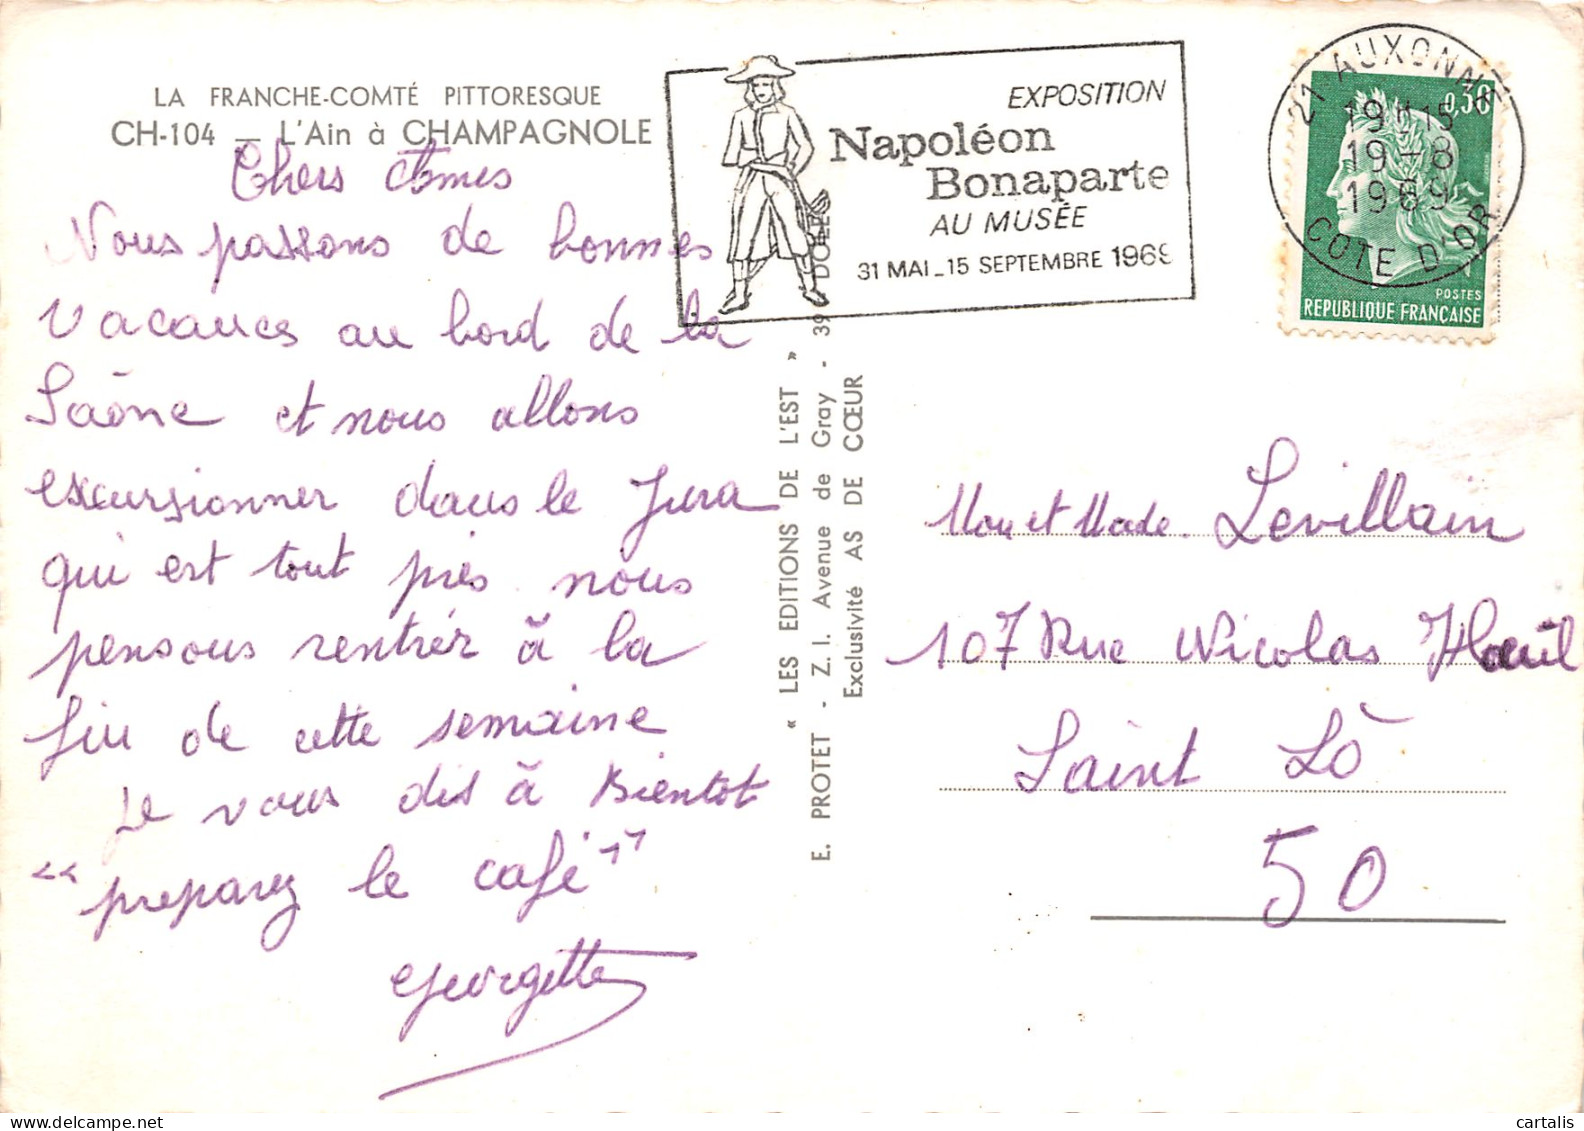 LA FRANCHE-COMTÉ PITTORESQUE
CH-104 — L'Ain à CHAMPAGNOLE
Chers Amis
Nous passons de bonnes
vacances au bord de la
Saône et nous allons
excursionner dans le Jura
qui est tout près nous
pensons rentrér à la
fin de cette semaine
Je vous dis à Bientot
"preparez le café"
Georgette
« LES EDITIONS DE L'EST »
E. PROTET - Z. I. Avenue de Gray - 39 DOLE
Exclusivité AS DE CŒUR
EXPOSITION
Napoléon
Bonaparte
AU MUSÉE
31 MAI_15 SEPTEMBRE 1969
21 AUXONNE
19H15
19-8
1969
COTE D'OR
0,30
POSTES
REPUBLIQUE FRANÇAISE
Mon et Made. Levillain
107 Rue Nicolas
Saint Lô
50
cartalis